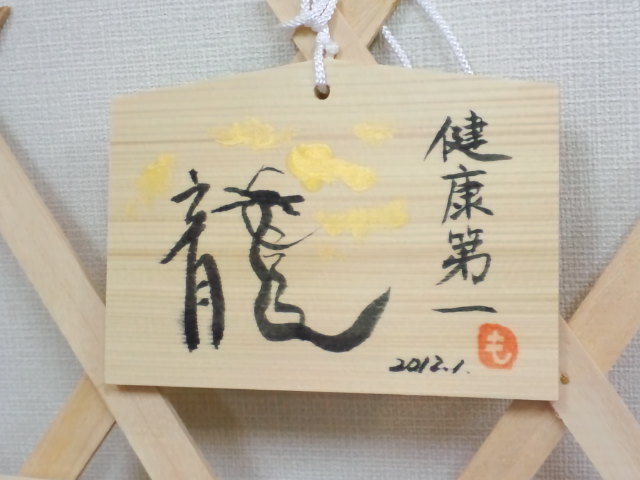 健康第一
龍
2012.1.
も